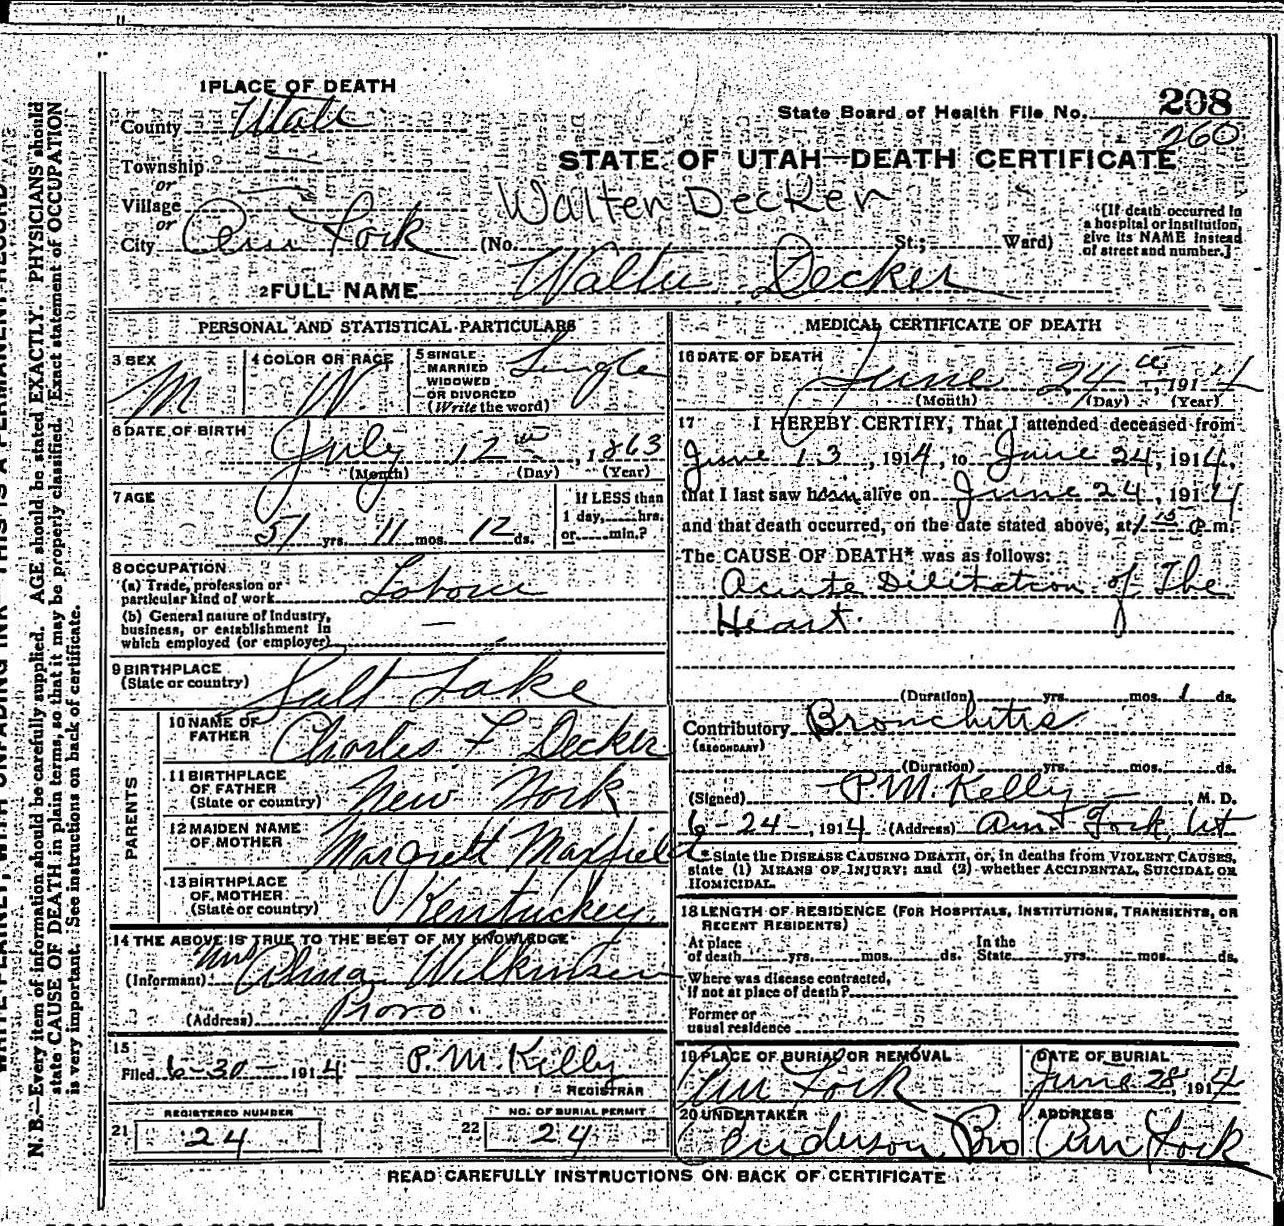 1 PLACE OF DEATH
County Utah
State Board of Health File No. 208
260
Township —
or
Village —
or
City Am Fork
STATE OF UTAH—DEATH CERTIFICATE
Walter Decker
(No. St.; Ward)
[If death occurred in
a hospital or institution,
give its NAME instead
of street and number.]
2 FULL NAME Walter Decker
PERSONAL AND STATISTICAL PARTICULARS
3 SEX M
4 COLOR OR RACE W.
5 SINGLE
MARRIED
WIDOWED
OR DIVORCED
(Write the word) Single
6 DATE OF BIRTH July 12 th, 1863
(Month) (Day) (Year)
7 AGE 51 yrs. 11 mos. 12 ds.
If LESS than
1 day, hrs.
or min.?
8 OCCUPATION
(a) Trade, profession or
particular kind of work Laborer
(b) General nature of industry,
business, or establishment in
which employed (or employer) —
9 BIRTHPLACE
(State or country) Salt Lake
PARENTS
10 NAME OF
FATHER Charles F Decker
11 BIRTHPLACE
OF FATHER
(State or country) New York
12 MAIDEN NAME
OF MOTHER Margrett Maxfield
13 BIRTHPLACE
OF MOTHER
(State or country) Kentuckey
14 THE ABOVE IS TRUE TO THE BEST OF MY KNOWLEDGE
(Informant) Mrs Alma Wilkinsen
(Address) Provo
15
Filed 6-30-1914 P. M. Kelly
REGISTRAR
REGISTERED NUMBER
21 24
NO. OF BURIAL PERMIT
22 24
MEDICAL CERTIFICATE OF DEATH
16 DATE OF DEATH
June 24 th, 1914
(Month) (Day) (Year)
17 I HEREBY CERTIFY, That I attended deceased from
June 13, 1914, to June 24, 1914,
that I last saw him alive on June 24, 1914
and that death occurred, on the date stated above, at 1 15 P m.
The CAUSE OF DEATH* was as follows:
Acute Dilitation of The
Heart.
(Duration) yrs. mos. 1 ds.
Contributory Bronchitis
(SECONDARY)
(Duration) yrs. mos. ds.
(Signed) P. M. Kelly, M. D.
6-24-, 1914 (Address) Am Fork, Ut
*State the DISEASE CAUSING DEATH, or, in deaths from VIOLENT CAUSES,
state (1) MEANS OF INJURY; and (2) whether ACCIDENTAL, SUICIDAL OR
HOMICIDAL.
18 LENGTH OF RESIDENCE (FOR HOSPITALS, INSTITUTIONS, TRANSIENTS, OR
RECENT RESIDENTS)
At place
of death yrs. mos. ds. In the
State yrs. mos. ds.
Where was disease contracted,
if not at place of death?
Former or
usual residence
19 PLACE OF BURIAL OR REMOVAL
Am Fork
DATE OF BURIAL
June 28, 1914
20 UNDERTAKER
Anderson Bro
ADDRESS
Am Fork
READ CAREFULLY INSTRUCTIONS ON BACK OF CERTIFICATE
N. B.—Every item of information should be carefully supplied. AGE should be stated EXACTLY. PHYSICIANS should
state CAUSE OF DEATH in plain terms, so that it may be properly classified. Exact statement of OCCUPATION
is very important. See instructions on back of certificate.